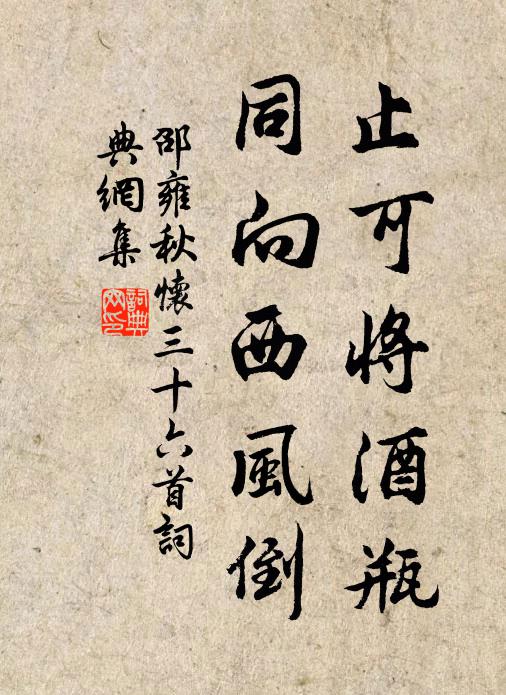 止可將酒瓶
同向西風倒
邵雍秋懷三十六首詞
典網集
詞典
網印